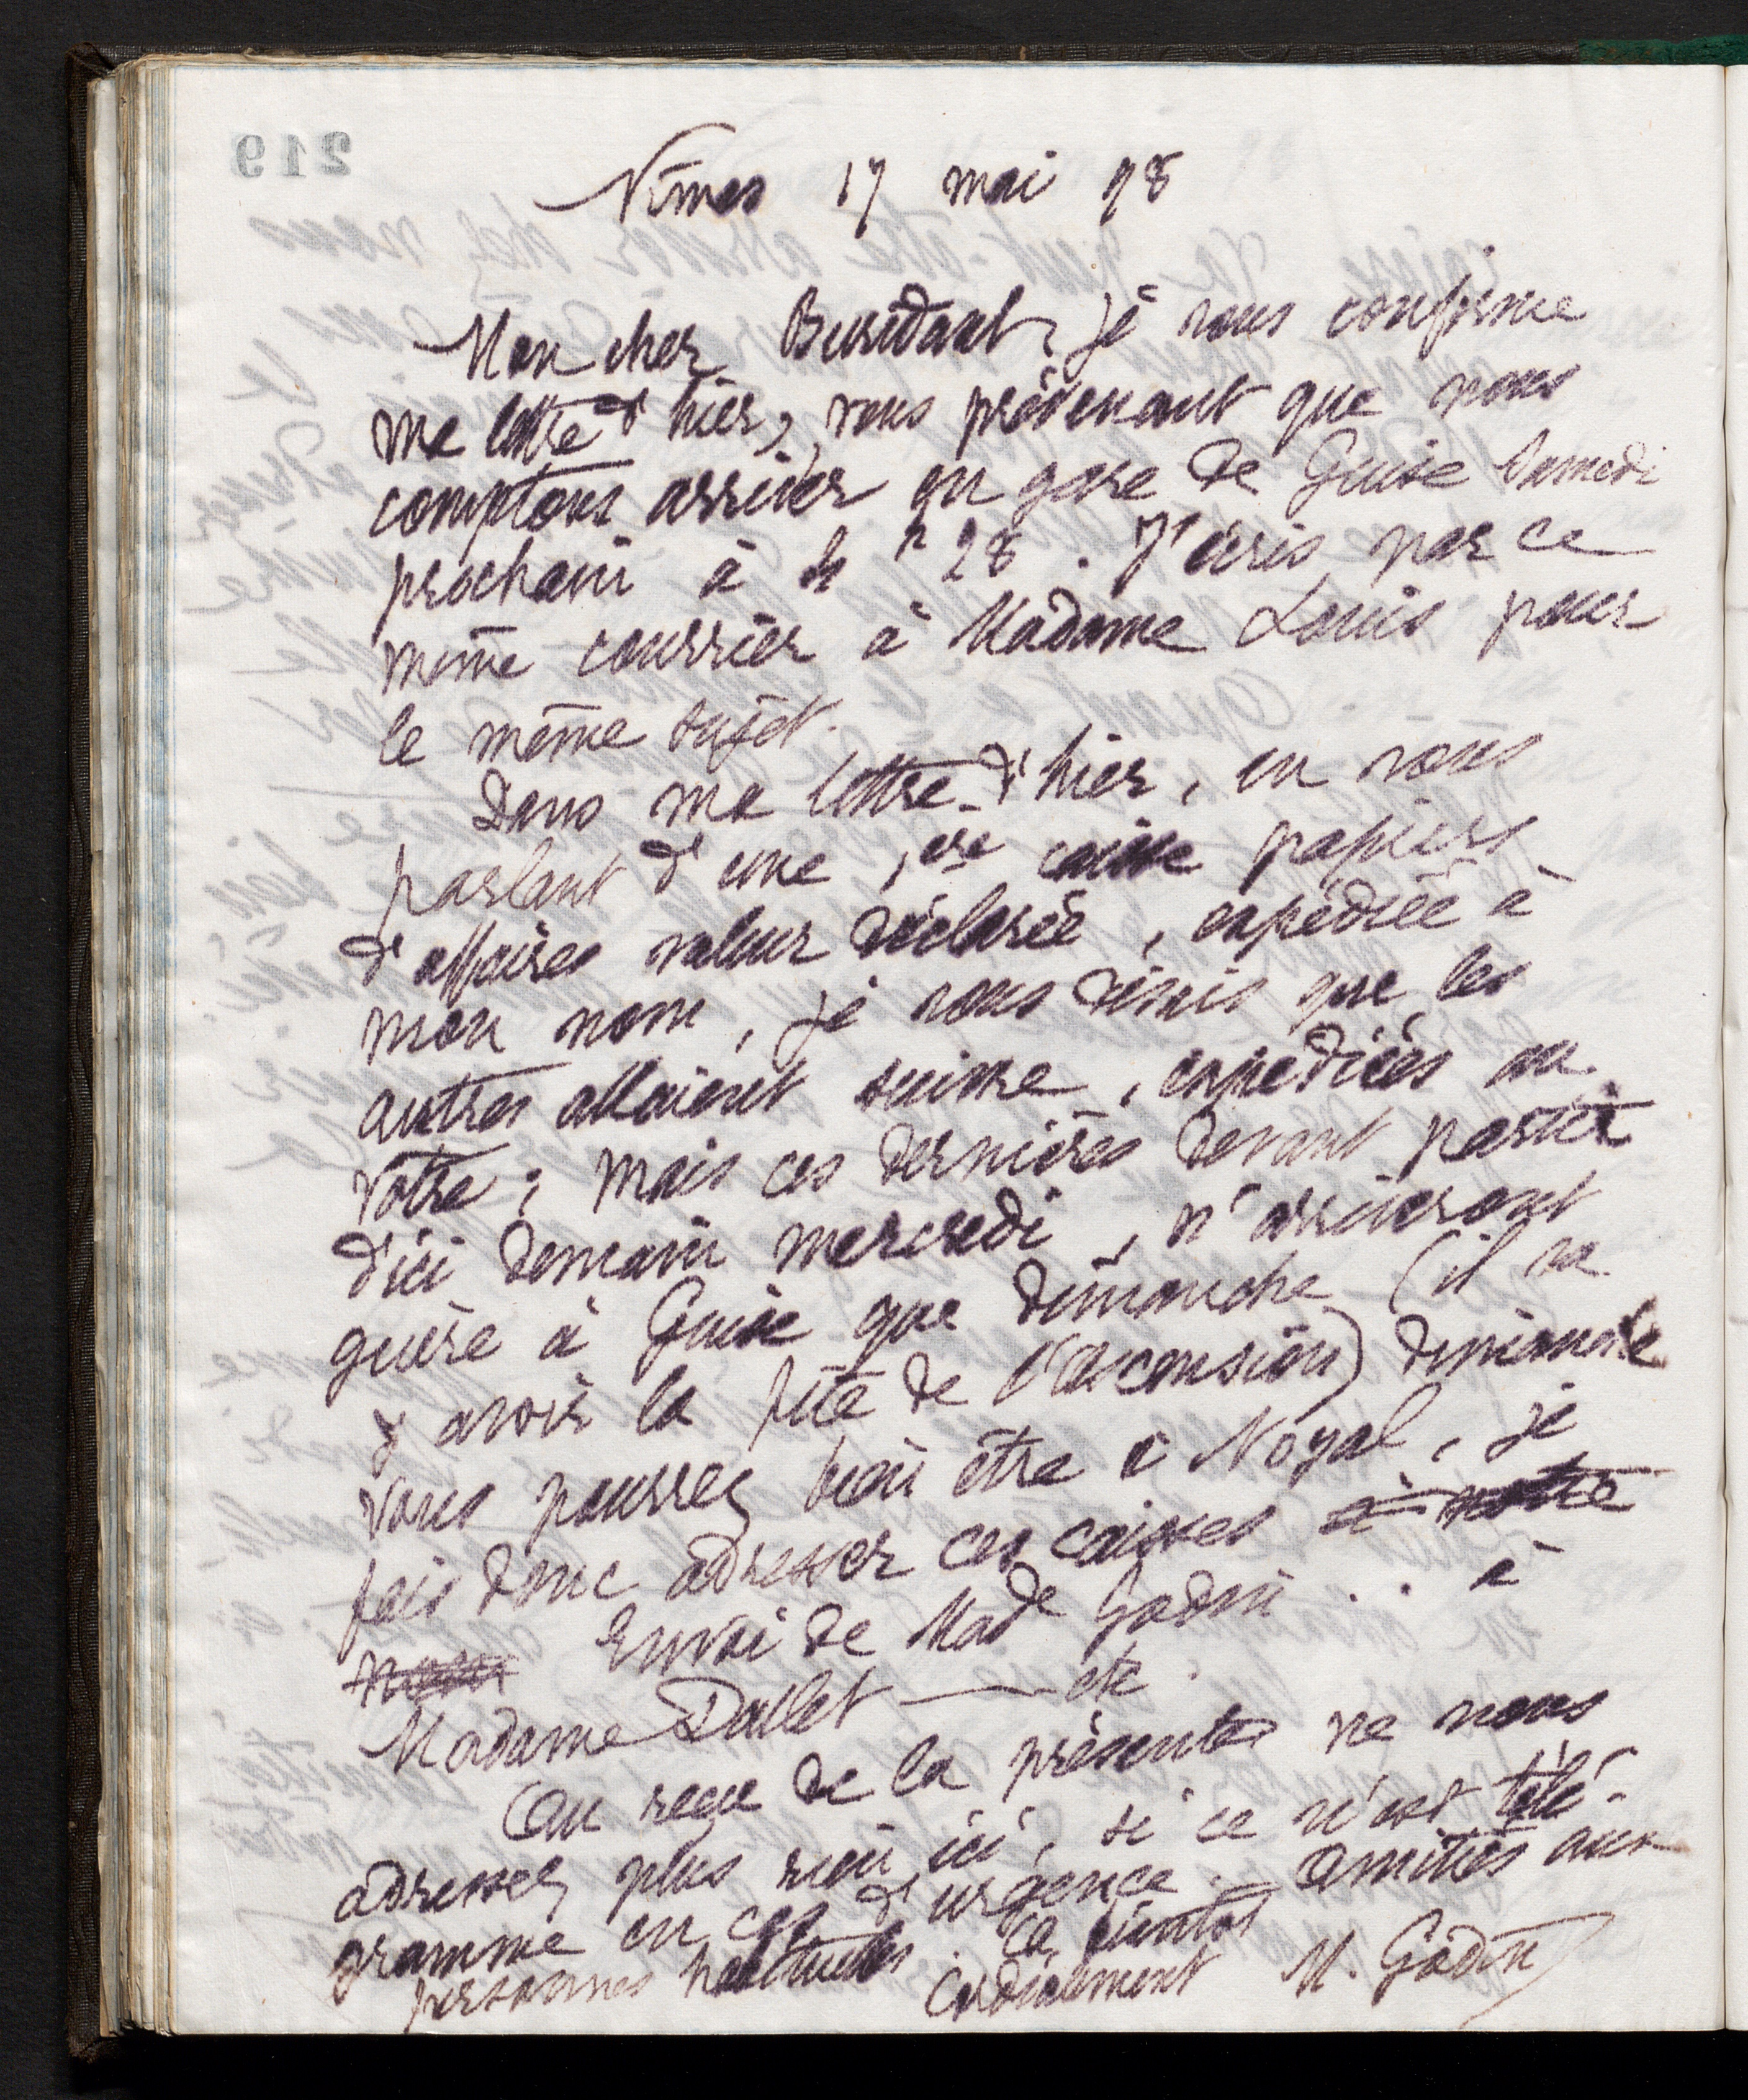 219
Nîmes 17 mai 98
Mon cher Buridant, je vous confirme
ma lettre d'hier, vous prévenant que nous
comptons arriver en gare de Guise Samedi
prochain à h 28. J'écris par ce
même courrier à Madame Louis pour
le même sujet.
Dans ma lettre d'hier, en vous
parlant d'une 1ere caisse papiers
d'affaires valeur déclarée, expédiée à
mon nom, je vous disais que les
autres allaient suivre, expédiées au
vôtre ; mais ces dernières devant partir
d'ici demain mercredi, n'arriveront
guère à Guise que dimanche (il va
y avoir la fête de l'ascension) dimanche
vous pourrez bien être à Noyal, je
fais donc adresser ces caisses à votre
nom Envoi de Made Godin .. à
Madame Dallet — etc.
Au reçu de la présente ne nous
adressez plus rien ici, si ce n'est télé-
gramme en cas d'urgence. Amitiés aux
personnes habituelles. À bientôt
Cordialement M. Godin